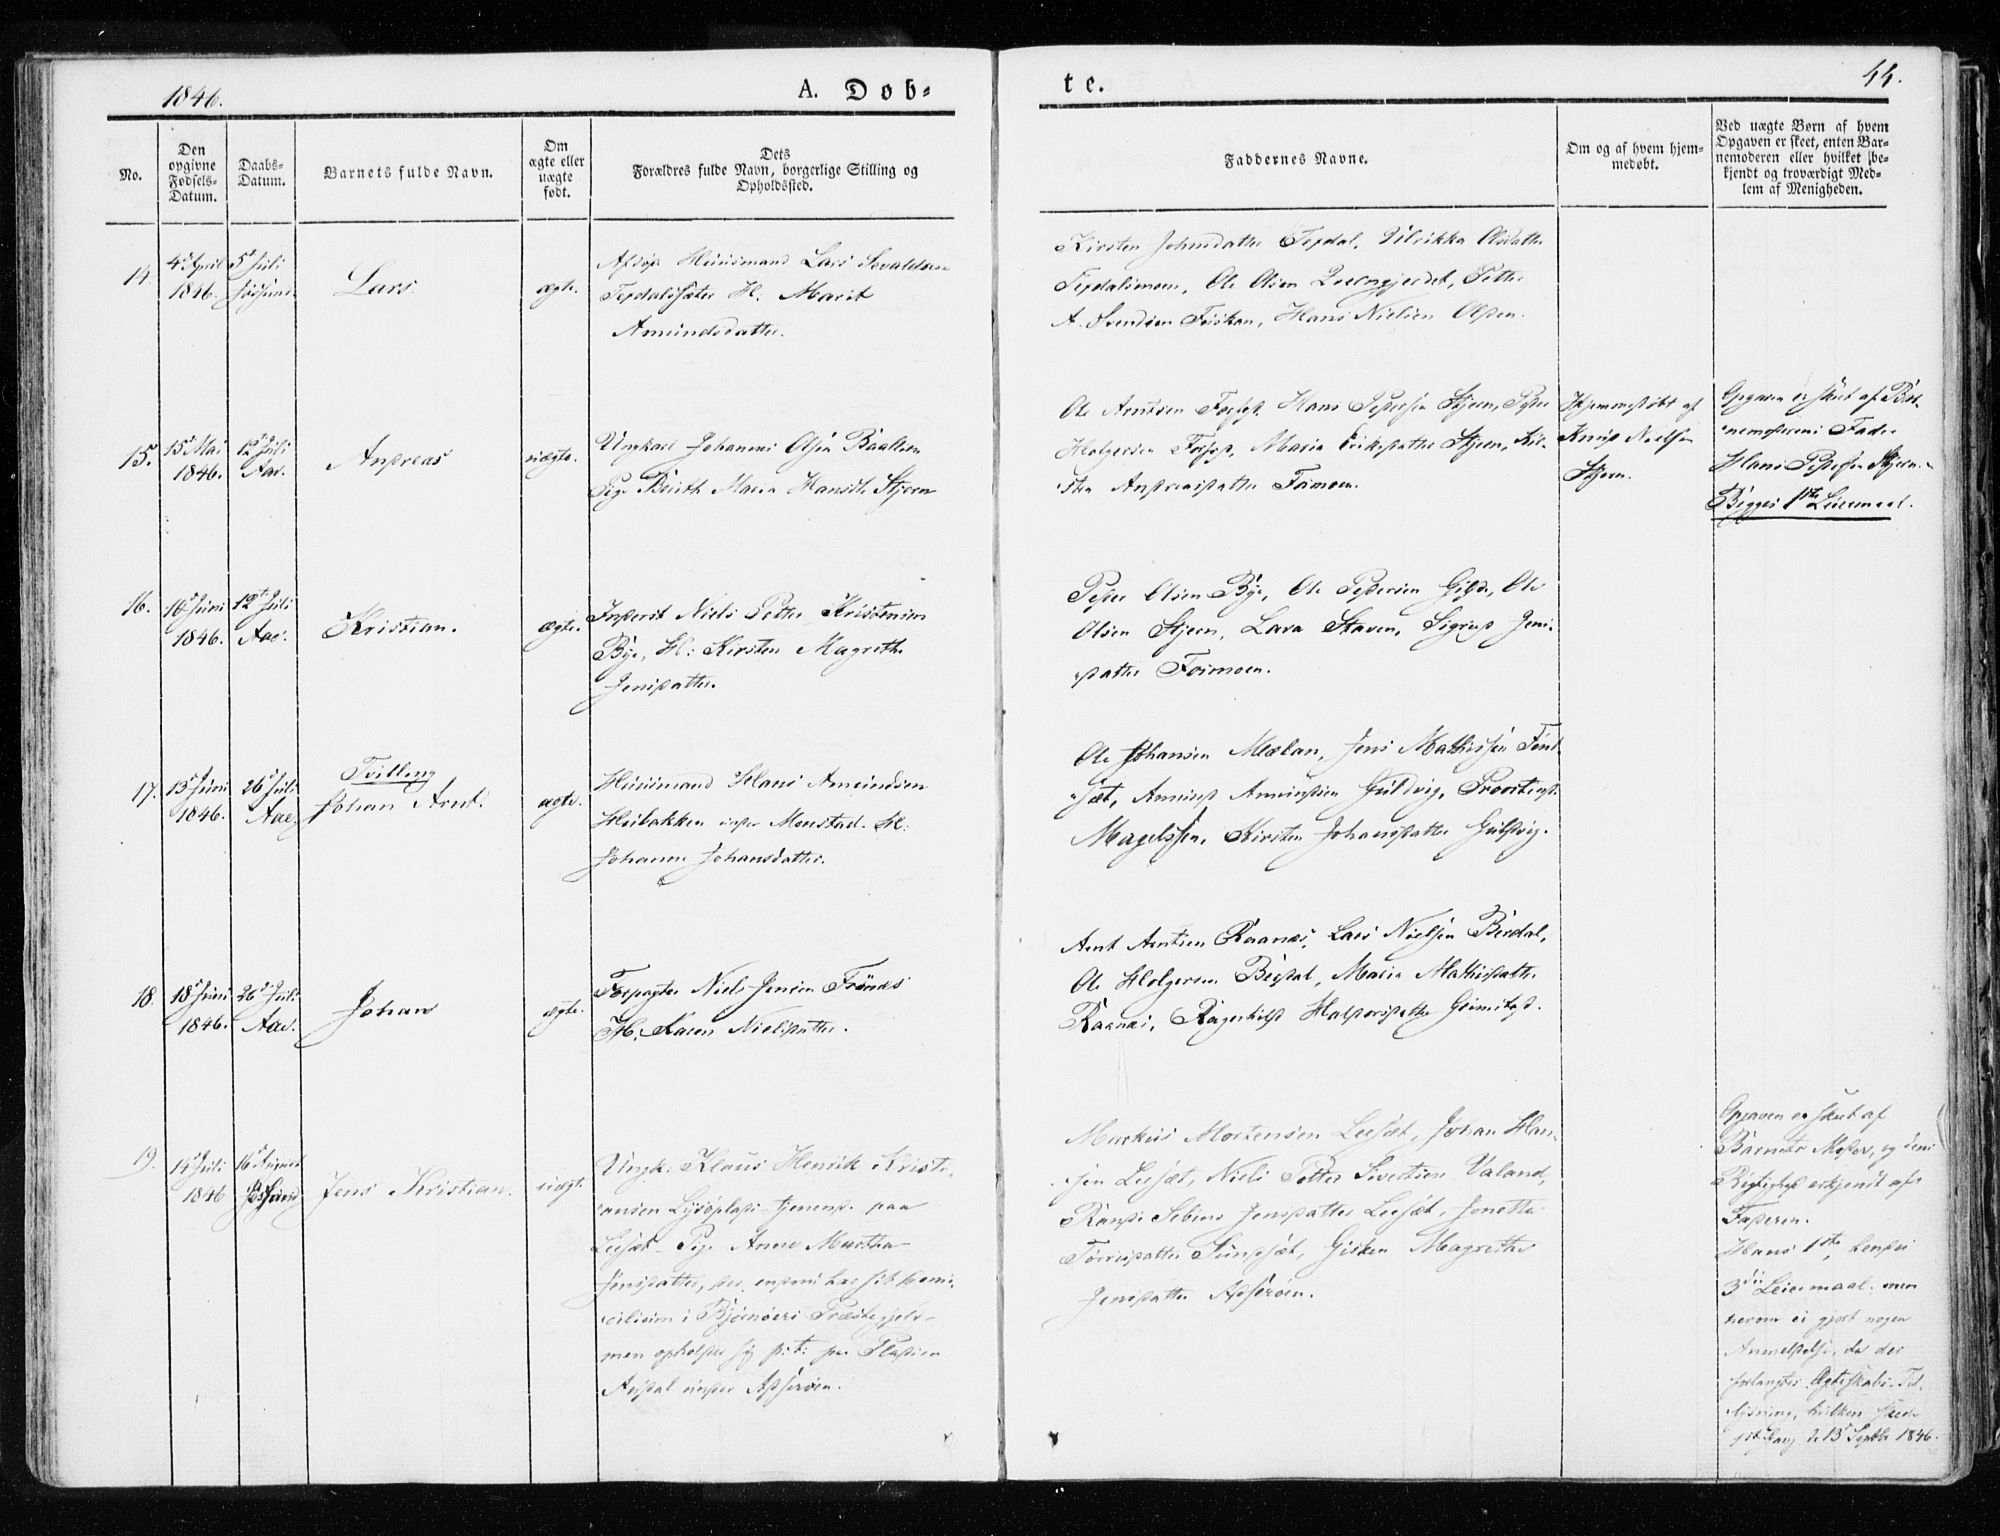 1846.
A. Døb-
te.
44.
No.
Den
opgivne
Fødsels-
Datum.
Daabs-
Datum.
Barnets fulde Navn.
Om
ægte eller
uægte
født.
Dets
Forældres fulde Navn, borgerlige Stilling og
Opholdssted.
Faddernes Navne.
Om og af hvem hjem-
medøbt.
Ved uægte Børn af hvem
Opgaven er skeet, enten Bar-
nemoderen eller hvilket be-
kjendt og troværdigt Med-
lem af Menigheden.
14.
4de April
1846.
5te Juli
Lars.
ægte.
Huusmand Lars Sevaldsen
H: Marit
Amundsdatter.
Kirsten Johnsdatter Tepdal, Ulrikka Olsdatter
Ole Olsen Qverngjerdet, Petter
A. Svendsen Foskan, Hans Nielsen Olsen.
15.
15de Mai
1846.
12te Juli
Aae.
Andreas
uægte.
Ungkarl Johannes Olsen Baatten
Pige Berith Maria Hansdtr Stjern
Ole Arntsen Hans Pedersen Stjern, Peder
Holgersen Maria Eriksdatter Stjern, Kir-
sten Andreasdatter Foimoen.
Hjemmedøbt af
Knud Nielsen
Stjern.
Opgaven er skeet af Bar-
nemoderens Fader
Hans Pedersen Stjern.
Begges 1ste Leiermaal.
16.
10de Juni
1846.
12te Juli
Aae.
Kristian.
ægte.
Inderst Niels Petter Kristensen
Bye, H: Kirsten Magrethe
Jensdatter.
Peder Olsen Bye, Ole Pedersen Ole
Olsen Stjern, Lava Staven, Sigrid Jens-
datter Foimoen.
17.
13de Juni
1846.
26de Juli
Aae.
Tvilling
Johan Arnt.
ægte.
Huusmand Hans Amundsen
Heibakken under Monstad. H:
Johanne Johansdatter.
Ole Johansen Mælan, Jens Mathissen
Amund Amundsen Guldvig, Provstinde
Magelssen, Kirsten Johansdatter Guldvig.
18.
18de Juni
1846.
26de Juli
Aae.
Johan
ægte.
Forpagter Niels Jensen Frønes
H. Karen Nielsdatter.
Arnt Arntsen Raanes, Lars Nielsen Berdal,
Ole Holgersen Berdal, Maria Mathisdatter
Raanes, Ragerhild Haldorsdatter
19.
14de Juli
1846
16de August
Jens Kristian.
uægte.
Ungk: Klaus Henrik Kristi-
ansen tjenende paa
Leesæt. Pige Anne Martha
Jensdatter, der endnu har sit Domi-
cilium i Bjørnøers Præstegjeld
men opholder sig p: t: paa Pladsen
Aasdal under
Markus Mortensen Leesæt, Johan Han-
sen Leesæt, Niels Petter Sivertsen Valand,
Randi Sebine Jensdatter Leesæt, Jonetta
Torrisdatter Sundsæt, Gisken Magrethe
Jensdatter
Opgaven er skeet af
Barnets Moder, og dens
Rigtighed erkjendt af
Faderen.
Hans 1ste, hendes
3die Leiermaal. men
herom ei gjort nogen
Anmeldelse, da der
forlangtes Ægteskabs-Til-
lysning, hvilken skede
1ste Gang d. 13de Septbr 1846.